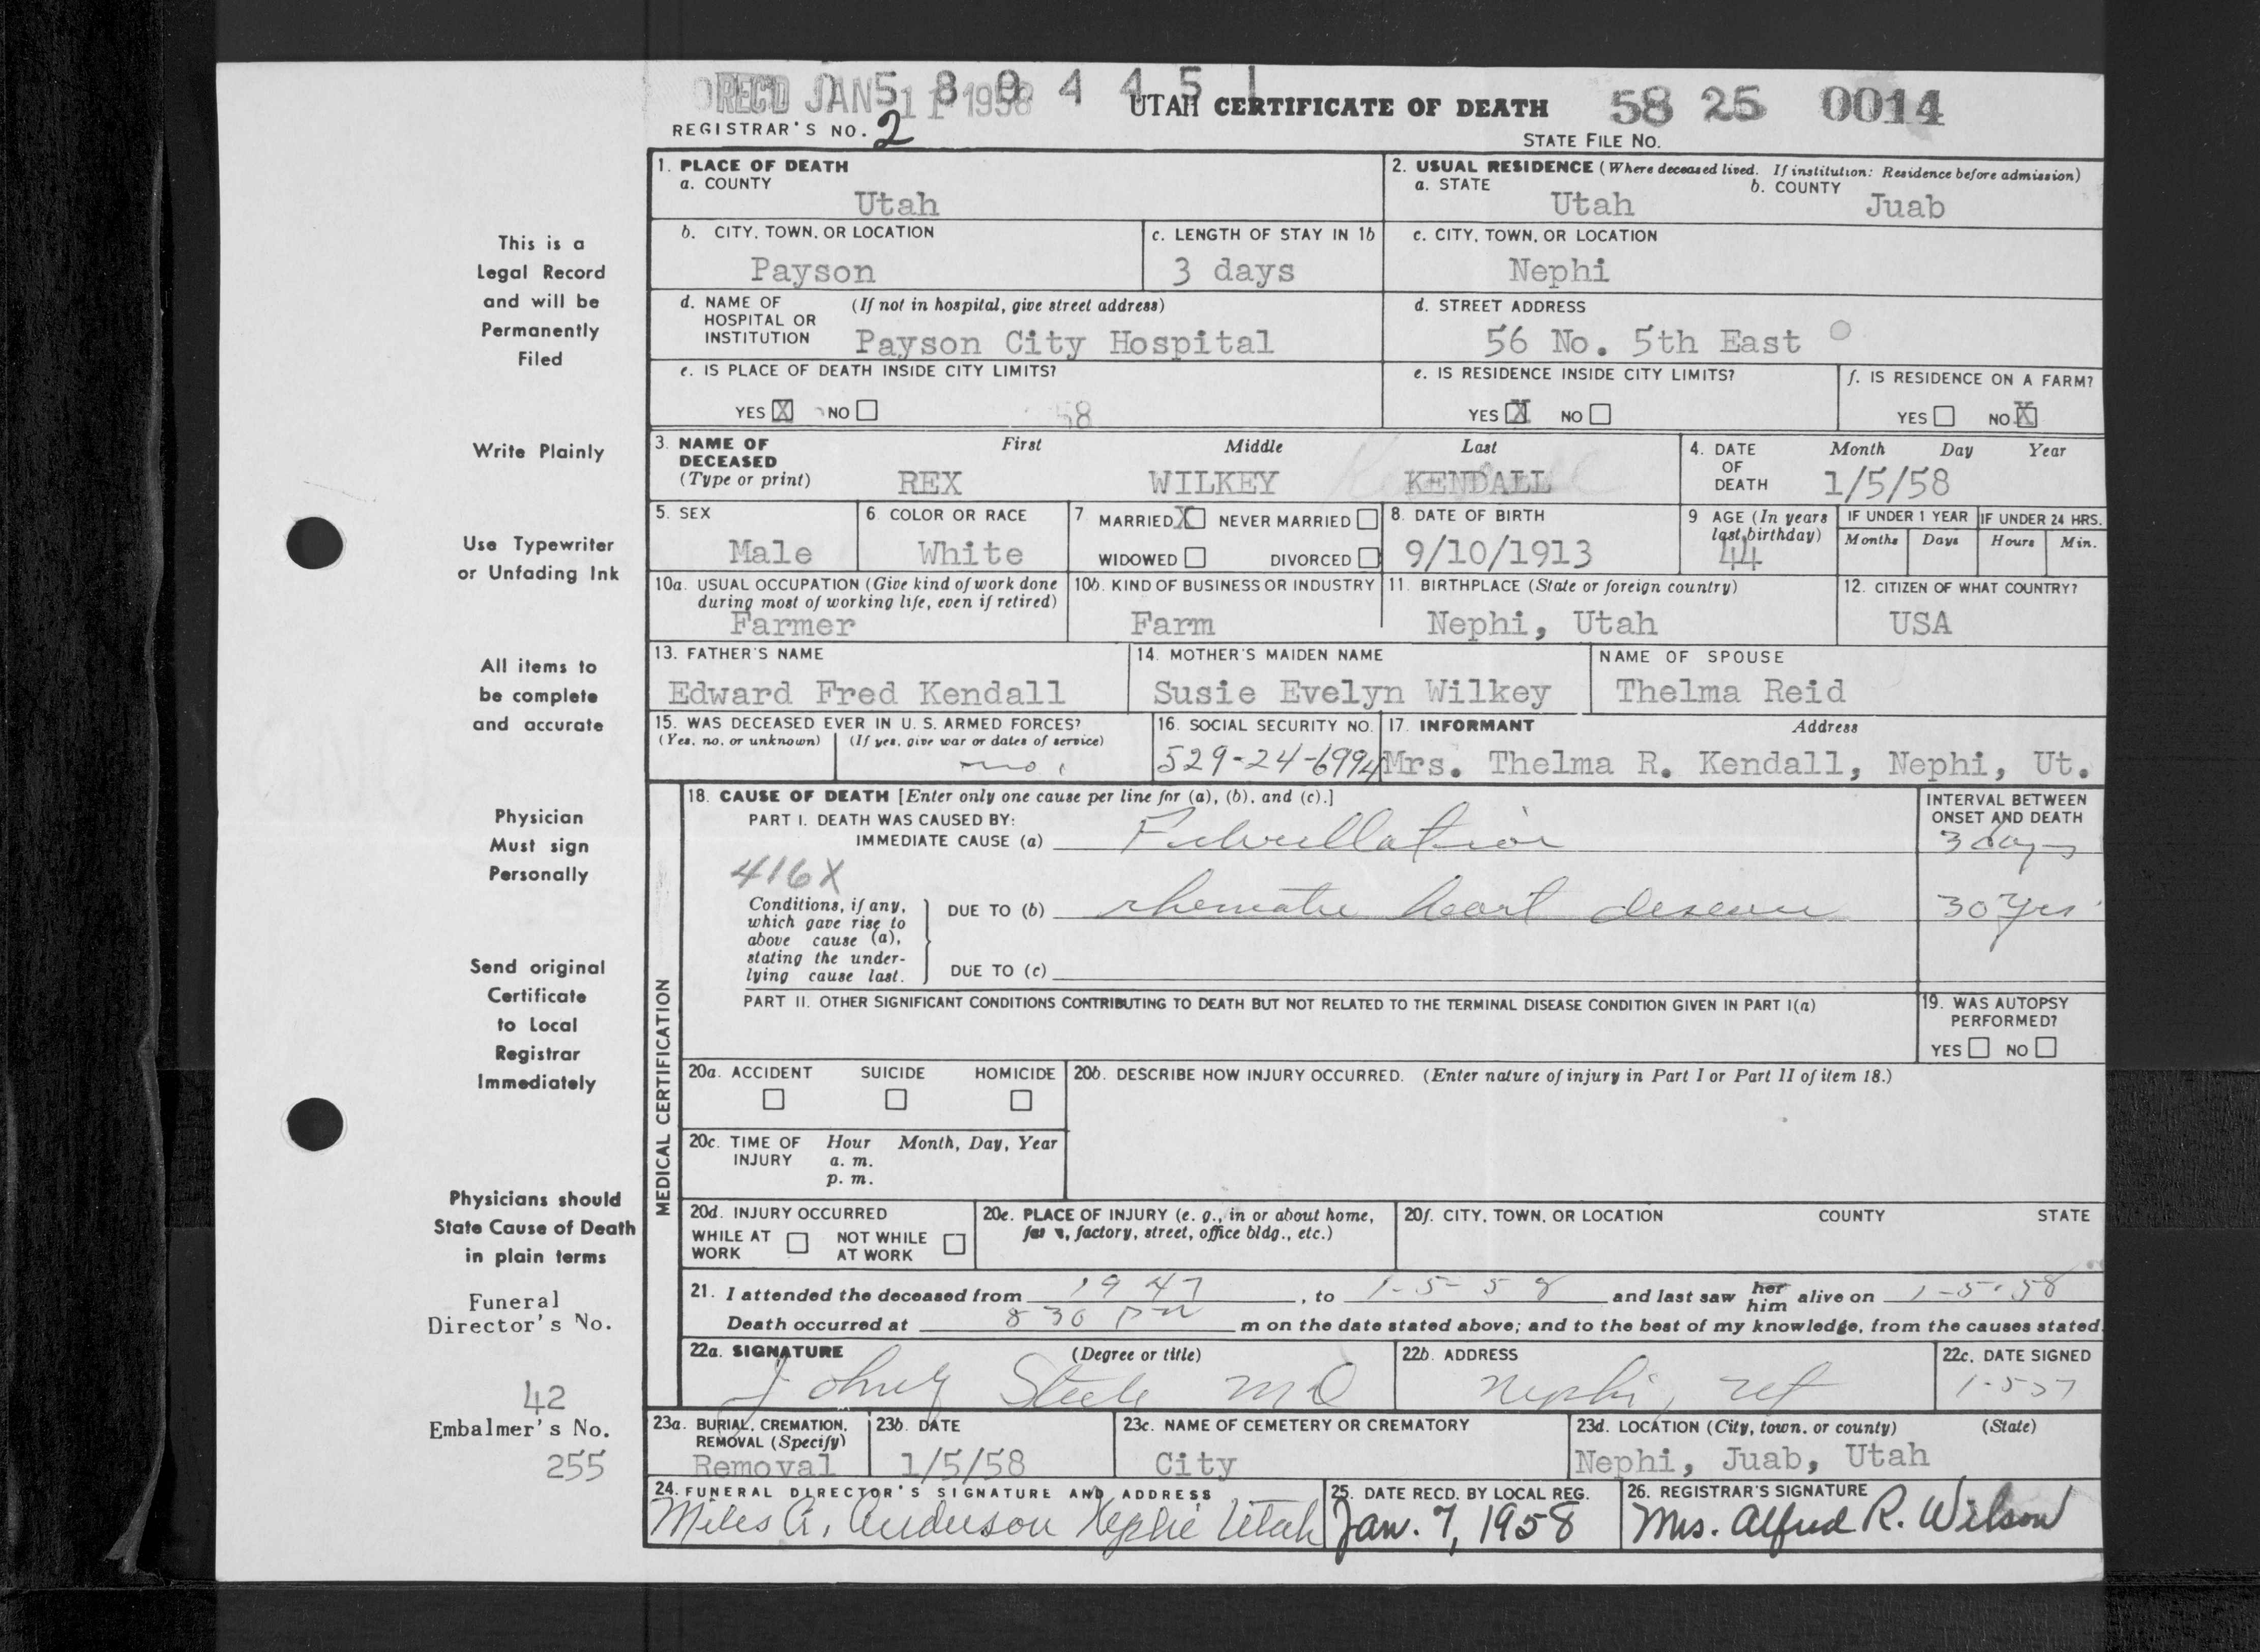 RECD JAN 11 1958
5 8 0 4 4 5 1
UTAH CERTIFICATE OF DEATH
58 25 0014
REGISTRAR'S NO. 2
STATE FILE NO.
1. PLACE OF DEATH
a. COUNTY
Utah
2. USUAL RESIDENCE (Where deceased lived. If institution: Residence before admission)
a. STATE
Utah
b. COUNTY
Juab
b. CITY, TOWN, OR LOCATION
Payson
c. LENGTH OF STAY IN 1b
3 days
c. CITY, TOWN, OR LOCATION
Nephi
d. NAME OF HOSPITAL OR INSTITUTION
(If not in hospital, give street address)
Payson City Hospital
d. STREET ADDRESS
56 No. 5th East
e. IS PLACE OF DEATH INSIDE CITY LIMITS?
YES X NO
58
e. IS RESIDENCE INSIDE CITY LIMITS?
YES X NO
f. IS RESIDENCE ON A FARM?
YES NO X
3. NAME OF DECEASED (Type or print)
First Middle Last
REX WILKEY KENDALL
4. DATE OF DEATH
Month Day Year
1/5/58
5. SEX
Male
6. COLOR OR RACE
White
7 MARRIED X NEVER MARRIED
WIDOWED DIVORCED
8. DATE OF BIRTH
9/10/1913
9 AGE (In years last birthday)
44
IF UNDER 1 YEAR
Months Days
IF UNDER 24 HRS.
Hours Min.
10a. USUAL OCCUPATION (Give kind of work done during most of working life, even if retired)
Farmer
10b. KIND OF BUSINESS OR INDUSTRY
Farm
11. BIRTHPLACE (State or foreign country)
Nephi, Utah
12. CITIZEN OF WHAT COUNTRY?
USA
13. FATHER'S NAME
Edward Fred Kendall
14. MOTHER'S MAIDEN NAME
Susie Evelyn Wilkey
NAME OF SPOUSE
Thelma Reid
15. WAS DECEASED EVER IN U. S. ARMED FORCES?
(Yes, no, or unknown) (If yes, give war or dates of service)
no
16. SOCIAL SECURITY NO.
529-24-6994
17. INFORMANT Address
Mrs. Thelma R. Kendall, Nephi, Ut.
MEDICAL CERTIFICATION
18. CAUSE OF DEATH [Enter only one cause per line for (a), (b), and (c).]
PART I. DEATH WAS CAUSED BY:
IMMEDIATE CAUSE (a) Fibrillation
INTERVAL BETWEEN ONSET AND DEATH
3 days
416X
Conditions, if any, which gave rise to above cause (a), stating the underlying cause last.
DUE TO (b) rhematic heart disease
30 yrs
DUE TO (c)
PART II. OTHER SIGNIFICANT CONDITIONS CONTRIBUTING TO DEATH BUT NOT RELATED TO THE TERMINAL DISEASE CONDITION GIVEN IN PART I(a)
19. WAS AUTOPSY PERFORMED?
YES NO
20a. ACCIDENT SUICIDE HOMICIDE
20b. DESCRIBE HOW INJURY OCCURRED. (Enter nature of injury in Part I or Part II of item 18.)
20c. TIME OF INJURY
Hour Month, Day, Year
a. m.
p. m.
20d. INJURY OCCURRED
WHILE AT WORK NOT WHILE AT WORK
20e. PLACE OF INJURY (e. g., in or about home, farm, factory, street, office bldg., etc.)
20f. CITY, TOWN, OR LOCATION COUNTY STATE
21. I attended the deceased from 1947, to 1-5-58 and last saw her him alive on 1-5-58
Death occurred at 8 30 PM m on the date stated above; and to the best of my knowledge, from the causes stated.
22a. SIGNATURE (Degree or title)
Steele MD
22b. ADDRESS
Nephi, Ut
22c. DATE SIGNED
23a. BURIAL, CREMATION, REMOVAL (Specify)
Removal
23b. DATE
1/5/58
23c. NAME OF CEMETERY OR CREMATORY
City
23d. LOCATION (City, town, or county) (State)
Nephi, Juab, Utah
24. FUNERAL DIRECTOR'S SIGNATURE AND ADDRESS
Miles A. Anderson Nephi Utah
25. DATE RECD. BY LOCAL REG.
Jan. 7, 1958
26. REGISTRAR'S SIGNATURE
Mrs. Alfred R. Wilson
This is a
Legal Record
and will be
Permanently
Filed
Write Plainly
Use Typewriter
or Unfading Ink
All items to
be complete
and accurate
Physician
Must sign
Personally
Send original
Certificate
to Local
Registrar
Immediately
Physicians should
State Cause of Death
in plain terms
Funeral
Director's No.
42
Embalmer's No.
255